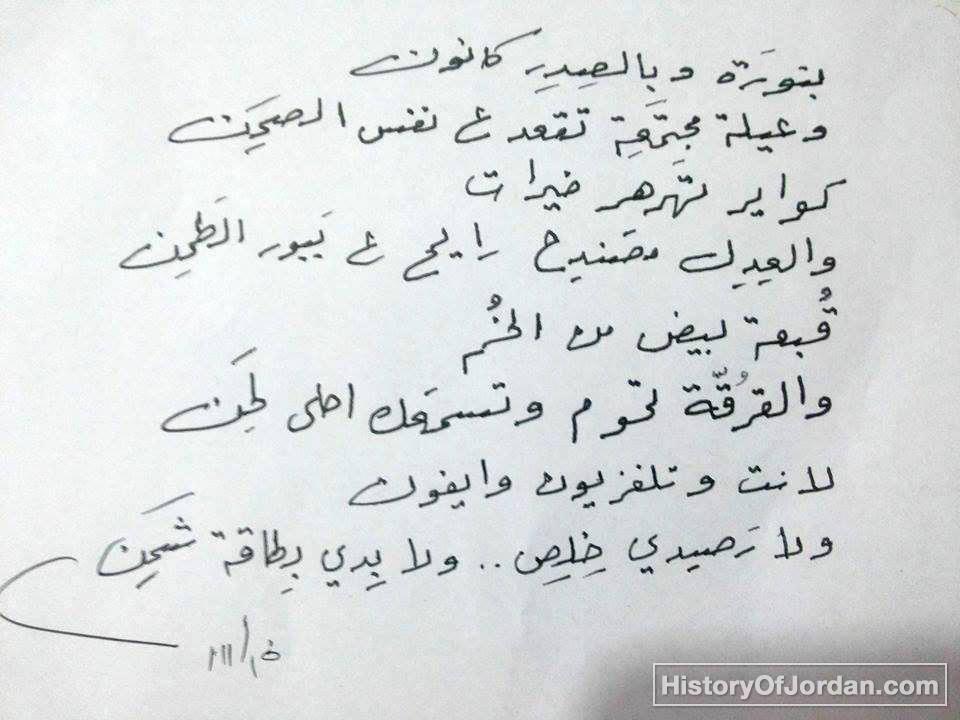 بنورَة وبالصِدِرِ كانون
وعيلة مجتَمعِة تقعد ع نفس الصحِن
كواير تهَرهر خيرات
والعِدِل مصَنديح رايح ع بَبور الطَحِن
قُبعة لبيض من الخُم
والقرُقّة تحوم وتسمعَك احلى لحَن
لانت وتلفزيون وايفون
ولا رَصيدي خِلِص .. ولا بِدي بِطاقة شحَن
HistoryOfJordan.com